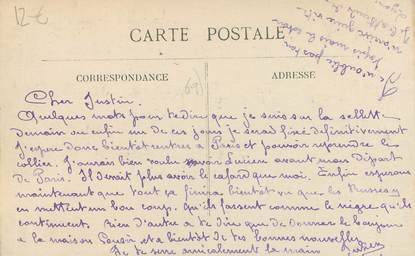 12-€
CARTE POSTALE
CORRESPONDANCE
ADRESSE
Cher Justin.
Quelques mots pour te dire que je suis sur la sellette
demain ou enfin un de ces jours je serai fixé définitivement
J'espère donc bientôt rentrer à Paris et pouvoir reprendre le
collier. J'aurais bien voulu voir Lucien avant mon départ
de Paris. Il devait plus avoir le cafard que moi. Enfin espérons
maintenant que tout ça finira bientôt vu que les Russes
en mettent un bon coup. Qu'ils fassent comme le nègre qu'ils
continuent. Rien d'autre à te dire que de donner le bonjour
à la maison et à bientôt de tes bonnes nouvelles
Je te serre amicalement la main